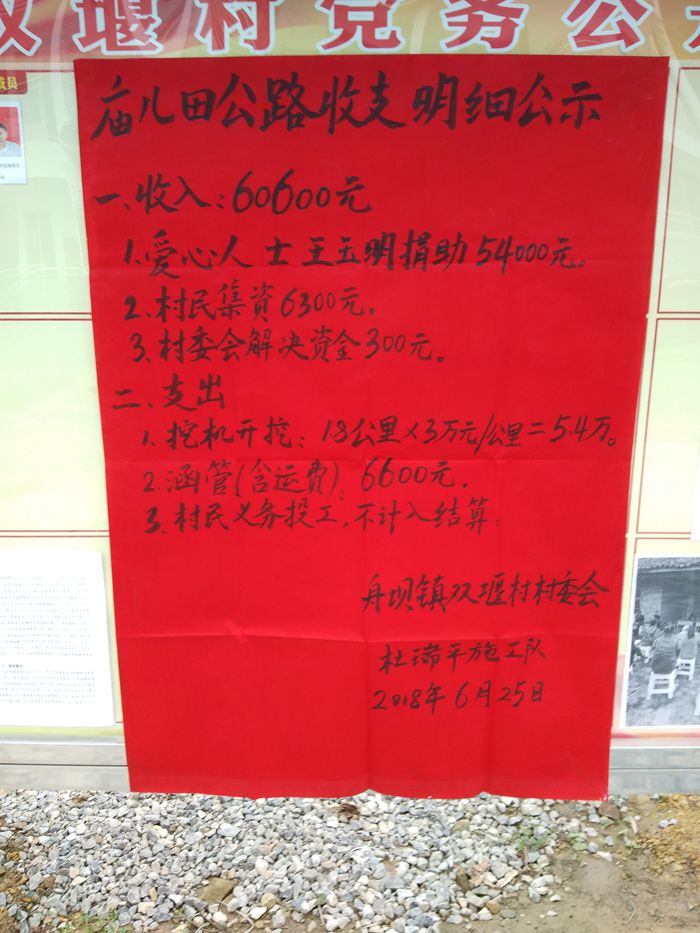 双堰村党务公
庙儿田公路收支明细公示
一、收入：60600元
1.爱心人士王玉明捐助54000元。
2.村民集资6300元。
3.村委会解决资金300元。
二、支出
1.挖机开挖：18公里×3万元/公里=5.4万。
2.涵管(含运费)：6600元.
3.村民义务投工,不计入结算.
舟坝镇双堰村村委会
杜瑞平施工队
2018年6月25日